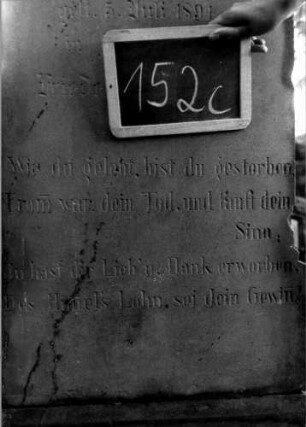 gest. 5. Juli 1891
in
Friede
152c
Wie du gelebt, bist du gestorben,
From̄ war dein Tod, und sanft dein
Sinn;
Du hast dir Lieb' u. Dank erworben,
Des Him̄els Lohn, sei dein Gewin̄